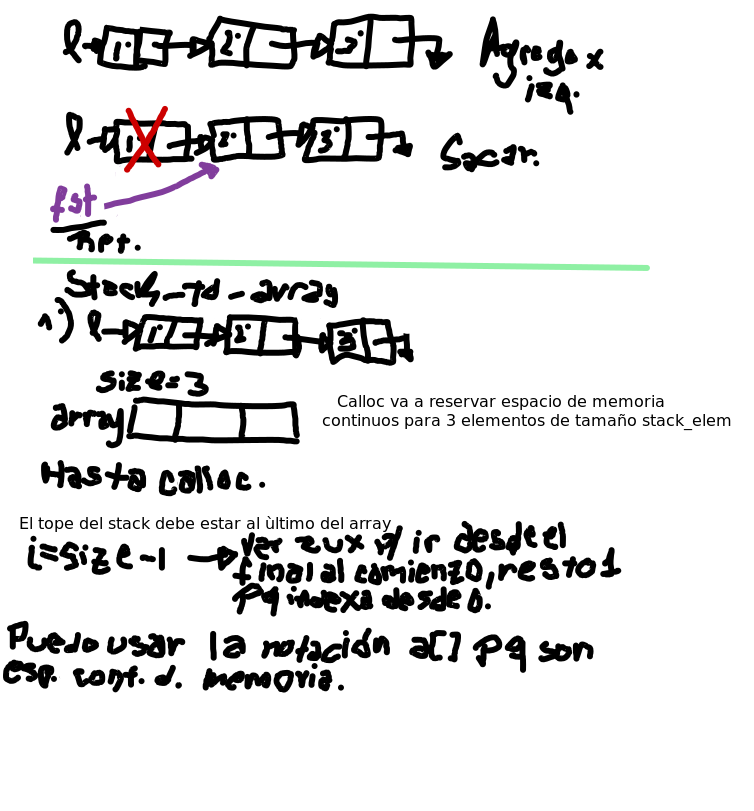 l 1° 2° 3° Agrego x
izq.
l 1° 2° 3° Sacar.
fst
rpt.
Stack_to_array
1°) l 1° 2° 3°
size=3
Calloc va a reservar espacio de memoria
continuos para 3 elementos de tamaño stack_elem
array
Hasta calloc.
El tope del stack debe estar al ùltimo del array
i=size-1 var aux p/ ir desde el
final al comienzo, resto 1
pq indexa desde 0.
Puedo usar la notación a[] pq son
esp. cont. d. memoria.